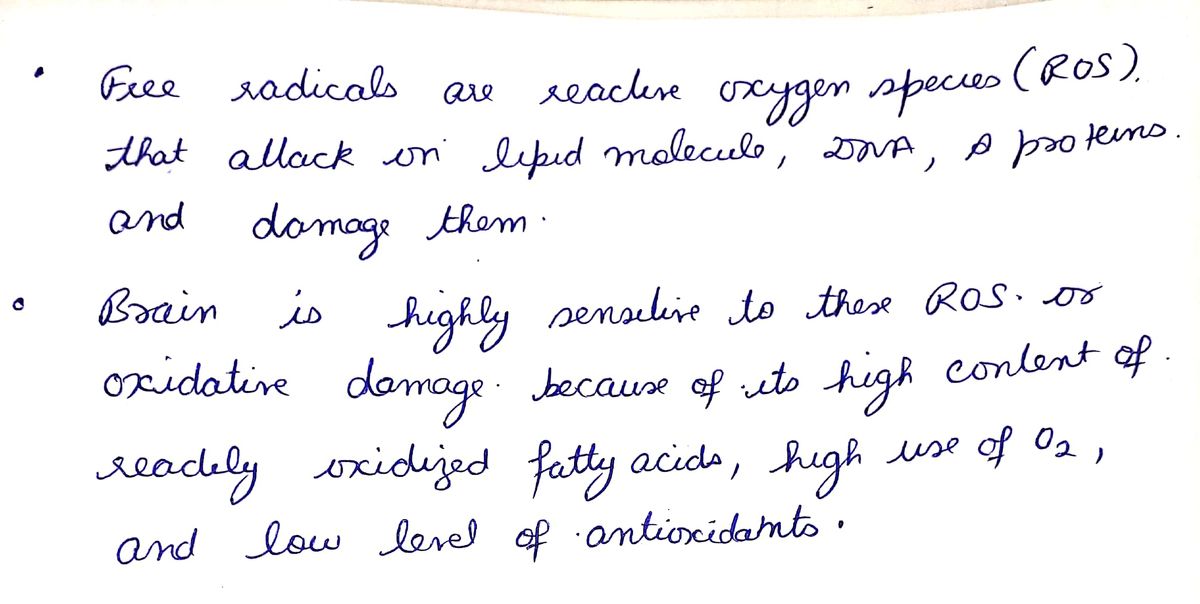 • Free radicals are reactive oxygen species (ROS).
that attack on lipid molecule, DNA, & proteins.
and damage them.
• Brain is highly sensitive to these ROS. or
oxidative damage. because of its high content of.
readily oxidized fatty acids, high use of O₂,
and low level of antioxidants.